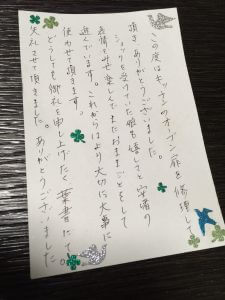 この度はキッチンのオーブン扉を修理して
頂きありがとうございました。
ショックを受けていた娘も嬉しそうで安堵の
表情をみせ楽しんでまたおままごとをして
遊んでいます。これからはより大切に大事に
使わせて頂きます。
どうしても御礼を申し上げたく葉書にて。
失礼させて頂きました。ありがとうございました